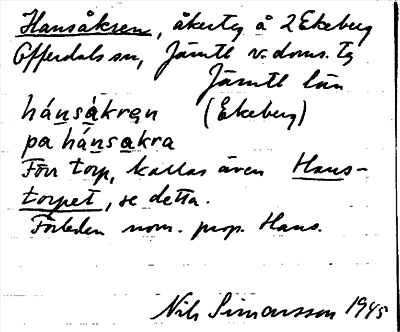 Hansåkren, åkerteg å 2 Ekeberg
Offerdals sn, Jämtl v. doms. tg
Jämtl län
hánsåkręn (Ekeberg)
pa hánsakra
Förr torp, kallas även Hans-
torpet, se detta.
Förleden nom. prop. Hans.
Nils Simonsson 1945